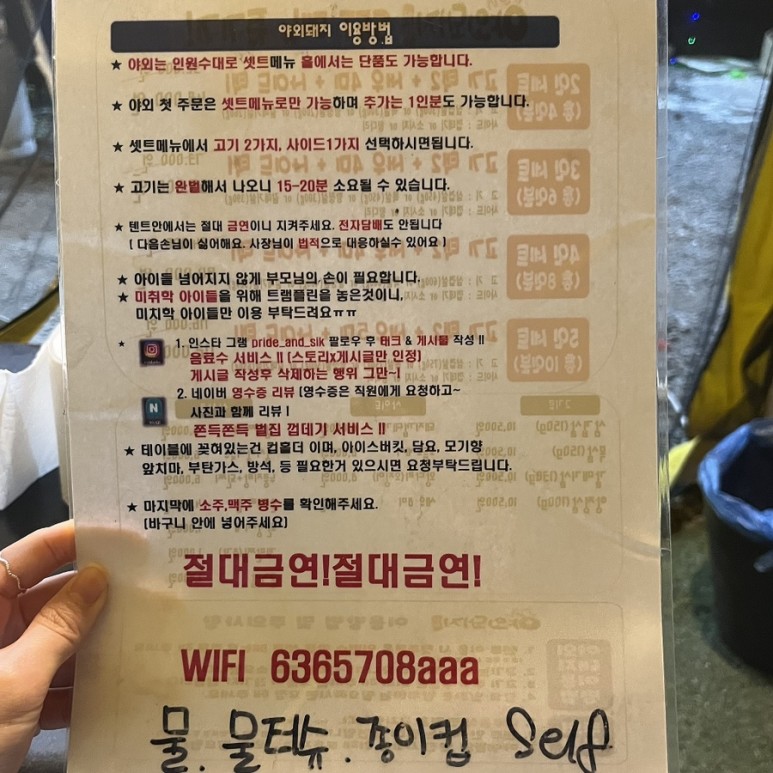 야외돼지 이용방법
★ 야외는 인원수대로 셋트메뉴 홀에서는 단품도 가능합니다.
★ 야외 첫 주문은 셋트메뉴로만 가능하며 추가는 1인분도 가능합니다.
★ 셋트메뉴에서 고기 2가지, 사이드1가지 선택하시면됩니다.
★ 고기는 완벌해서 나오니 15-20분 소요될 수 있습니다.
★ 텐트안에서는 절대 금연이니 지켜주세요. 전자담배도 안됩니다
( 다음손님이 싫어해요. 사장님이 법적으로 대응하실수 있어요 )
★ 아이들 넘어지지 않게 부모님의 손이 필요합니다.
★ 미취학 아이들을 위해 트램플린을 놓은것이니,
미치학 아이들만 이용 부탁드려요ㅠㅠ
★ 1. 인스타 그램 pride_and_sik 팔로우 후 태크 & 게시물 작성 !!
음료수 서비스 !! (스토리x게시글만 인정)
게시글 작성후 삭제하는 행위 그만~!
N 2. 네이버 영수증 리뷰 (영수증은 직원에게 요청하고~
사진과 함께 리뷰 !
쫀득쫀득 벌집 껍데기 서비스 !!
★ 테이블에 꽂혀있는건 컵홀더 이며, 아이스버킷, 담요, 모기향
앞치마, 부탄가스, 방석, 등 필요한거 있으시면 요청부탁드립니다.
★ 마지막에 소주,맥주 병수를 확인해주세요.
(바구니 안에 넣어주세요)
절대금연!절대금연!
WIFI 6365708aaa
물. 물티슈. 종이컵 Self